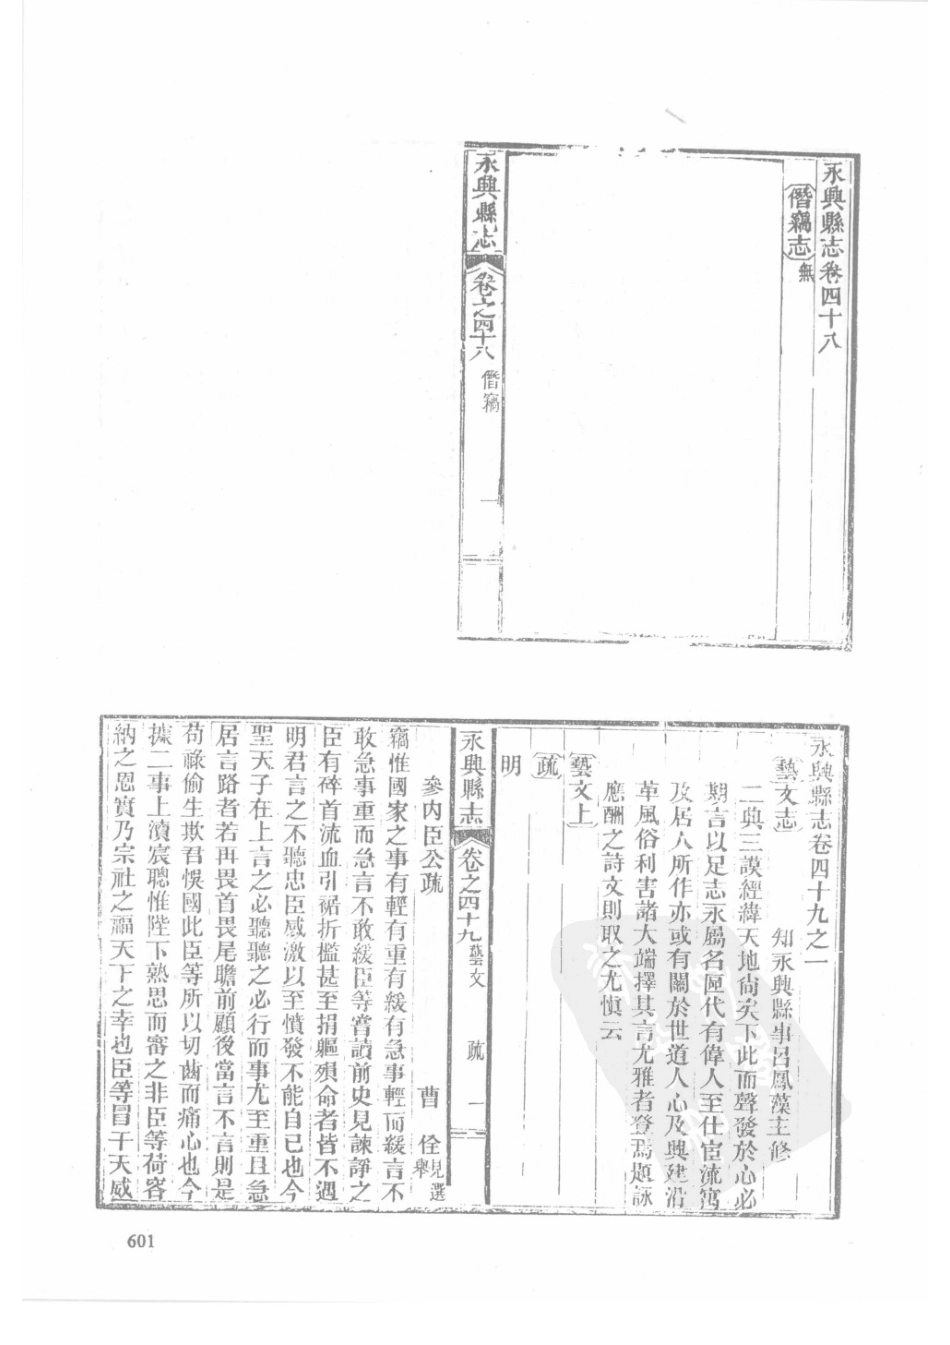 永興縣志卷四十八
僭竊志無
永興縣志 卷之四十八 僭竊 一
永興縣志卷四十九之一
知永興縣事呂鳳藻主修
藝文志
二典三謨經緯天地尙矣下此而聲發於心必
期言以足志永屬名區代有偉人至仕宦流寓
及居人所作亦或有關於世道人心及興建沿
革風俗利害諸大端擇其言尤雅者登焉題詠
應酬之詩文則取之尤慎云
藝文上
疏
明
永興縣志 卷之四十九 藝文 疏 一
參內臣公疏 曹佺見選舉
竊惟國家之事有輕有重有緩有急事輕而緩言不
敢急事重而急言不敢緩臣等嘗讀前史見諫諍之
臣有碎首流血引裾折檻甚至捐軀殞命者皆不遇
明君言之不聽忠臣感激以至憤發不能自已也今
聖天子在上言之必聽聽之必行而事尤至重且急
居言路者若再畏首畏尾瞻前顧後當言不言則是
苟祿偷生欺君悞國此臣等所以切齒而痛心也今
據二事上瀆宸聰惟陛下熟思而審之非臣等荷容
納之恩實乃宗社之福天下之幸也臣等冒干天威
601